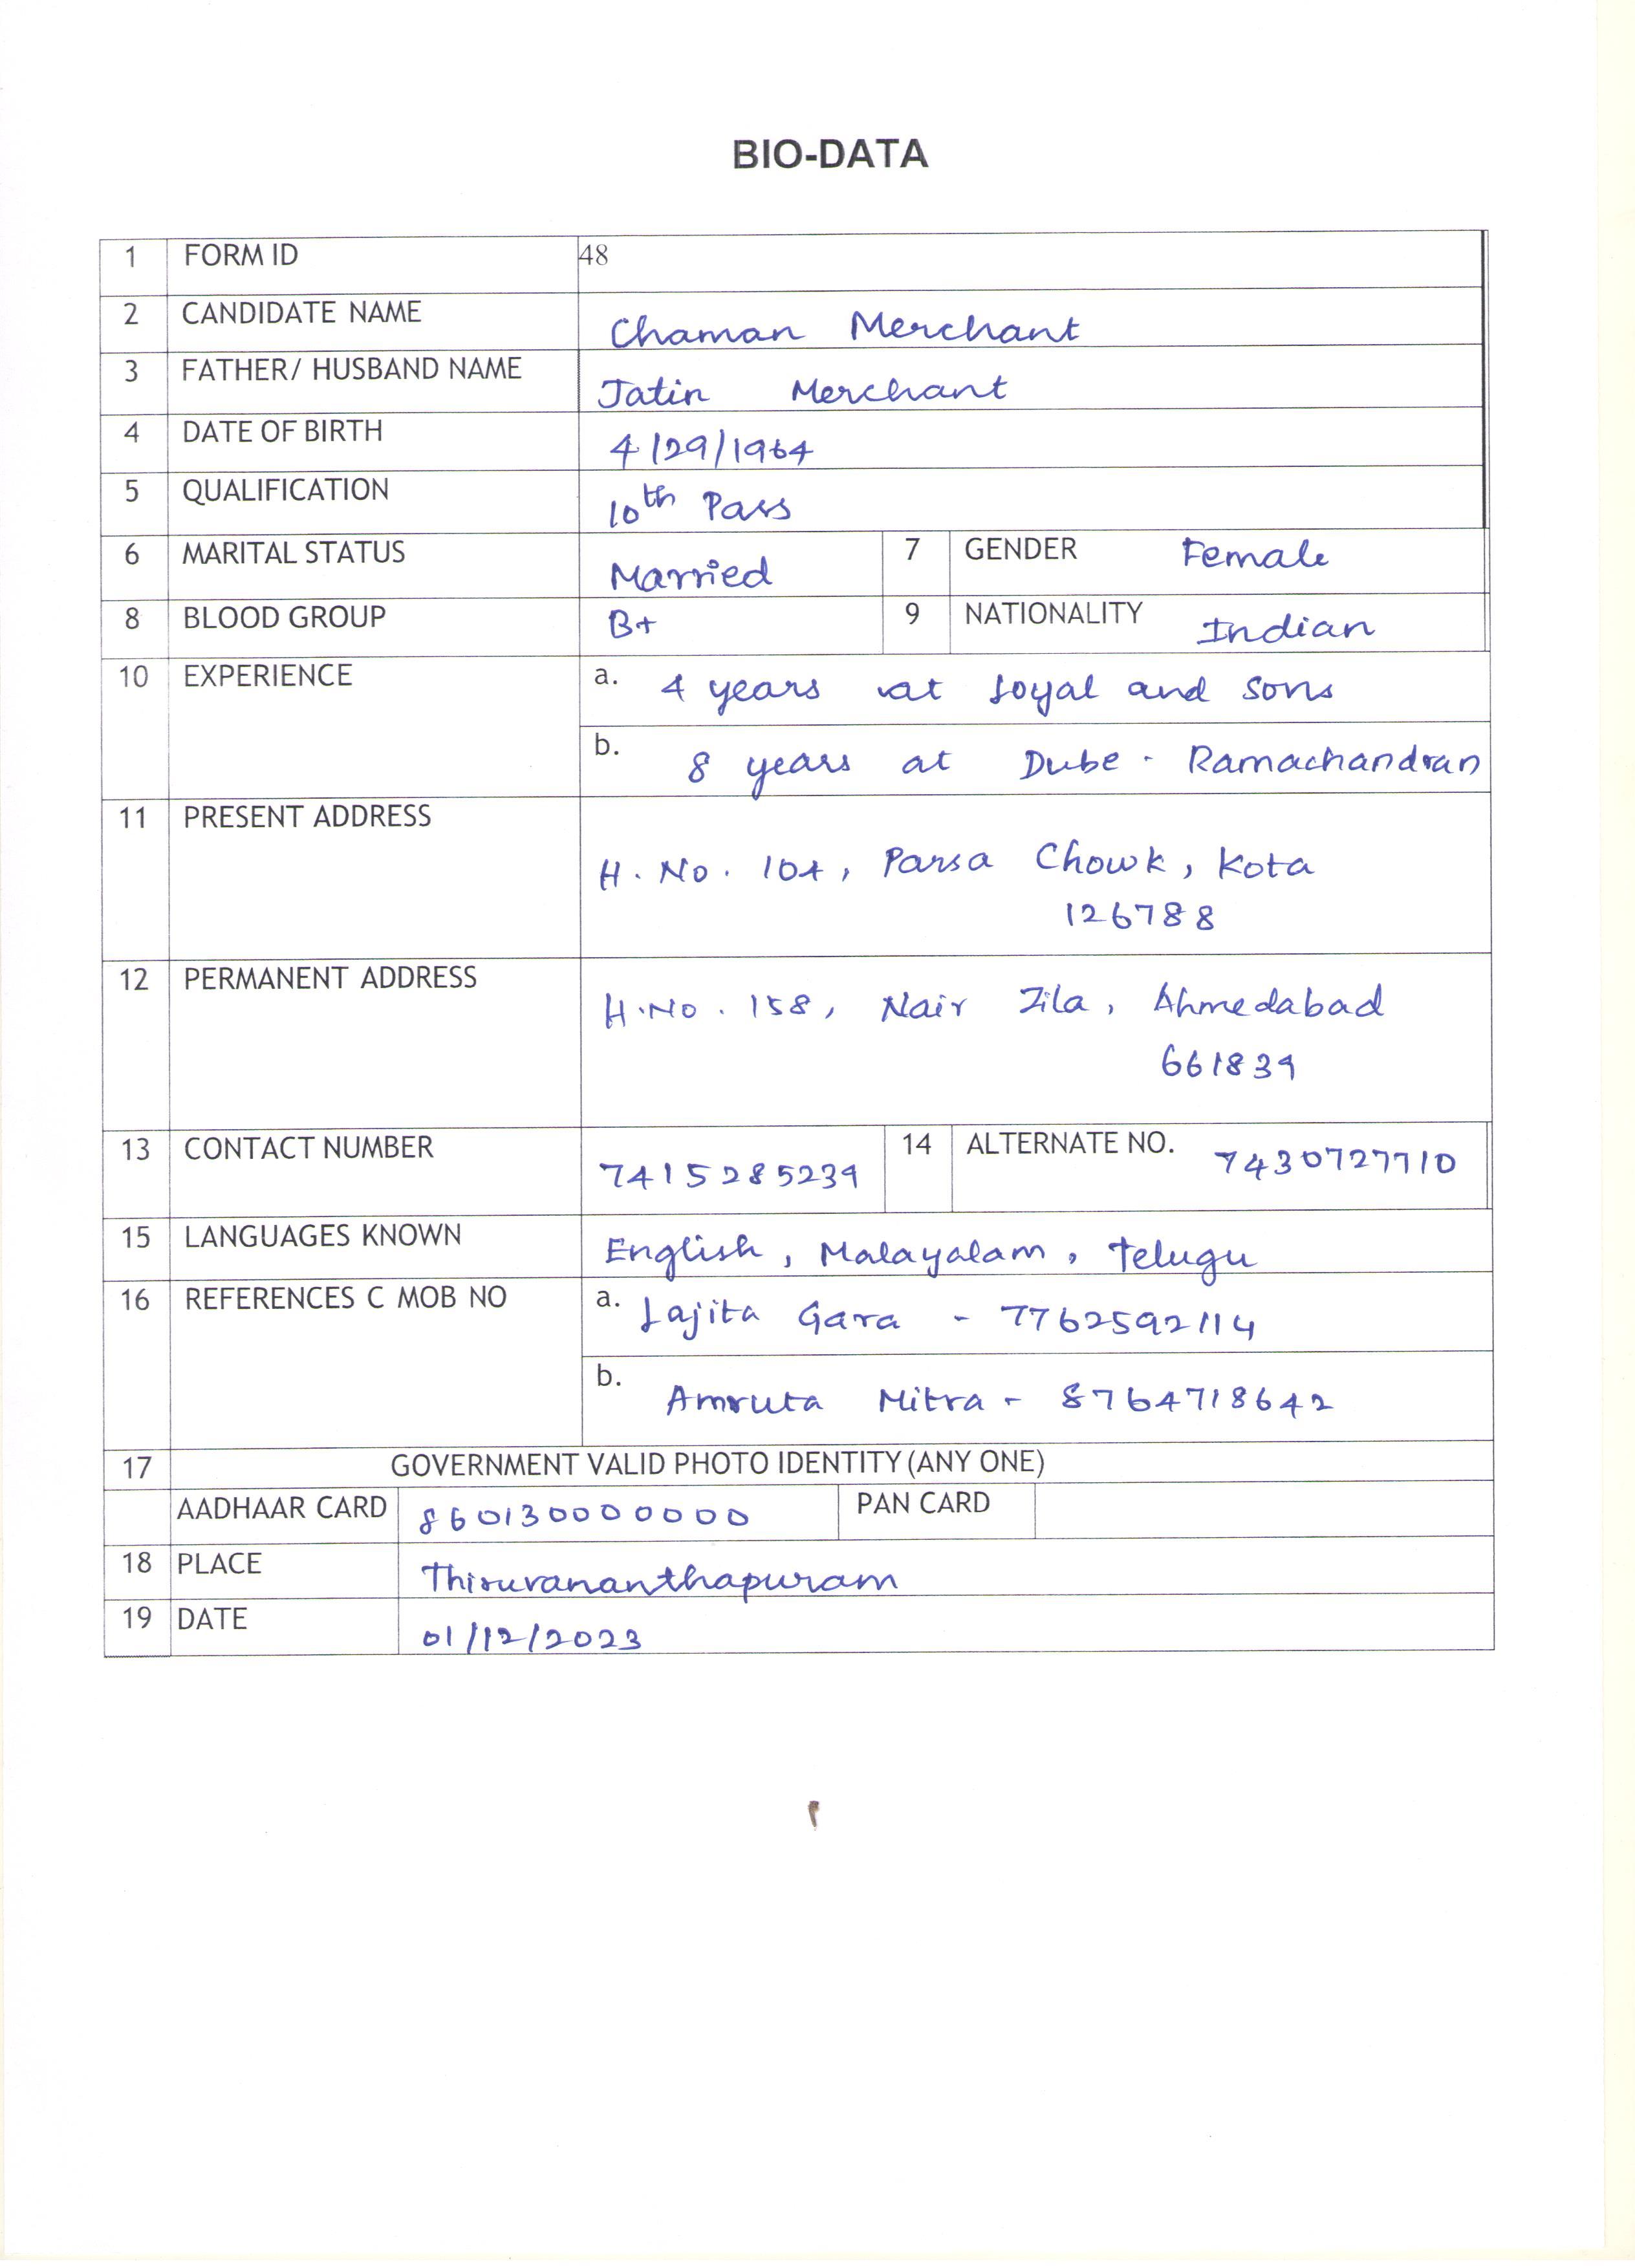 BIO-DATA
1 FORM ID 48
2 CANDIDATE NAME Chaman Merchant
3 FATHER/ HUSBAND NAME Jatin Merchant
4 DATE OF BIRTH 4/29/1964
5 QUALIFICATION 10th Pass
6 MARITAL STATUS Married 7 GENDER Female
8 BLOOD GROUP B+ 9 NATIONALITY Indian
10 EXPERIENCE a. 4 years at Loyal and Sons
b. 8 years at Dube - Ramachandran
11 PRESENT ADDRESS
H. No. 104, Parsa Chowk, Kota
126788
12 PERMANENT ADDRESS
H.No. 158, Nair Zila, Ahmedabad
661839
13 CONTACT NUMBER 7415285239 14 ALTERNATE NO. 7430727710
15 LANGUAGES KNOWN English, Malayalam, Telugu
16 REFERENCES C MOB NO a. Lajita Gara - 7762592114
b. Amruta Mitra - 8764718642
17 GOVERNMENT VALID PHOTO IDENTITY (ANY ONE)
AADHAAR CARD 860130000000 PAN CARD
18 PLACE Thiruvananthapuram
19 DATE 01/12/2023